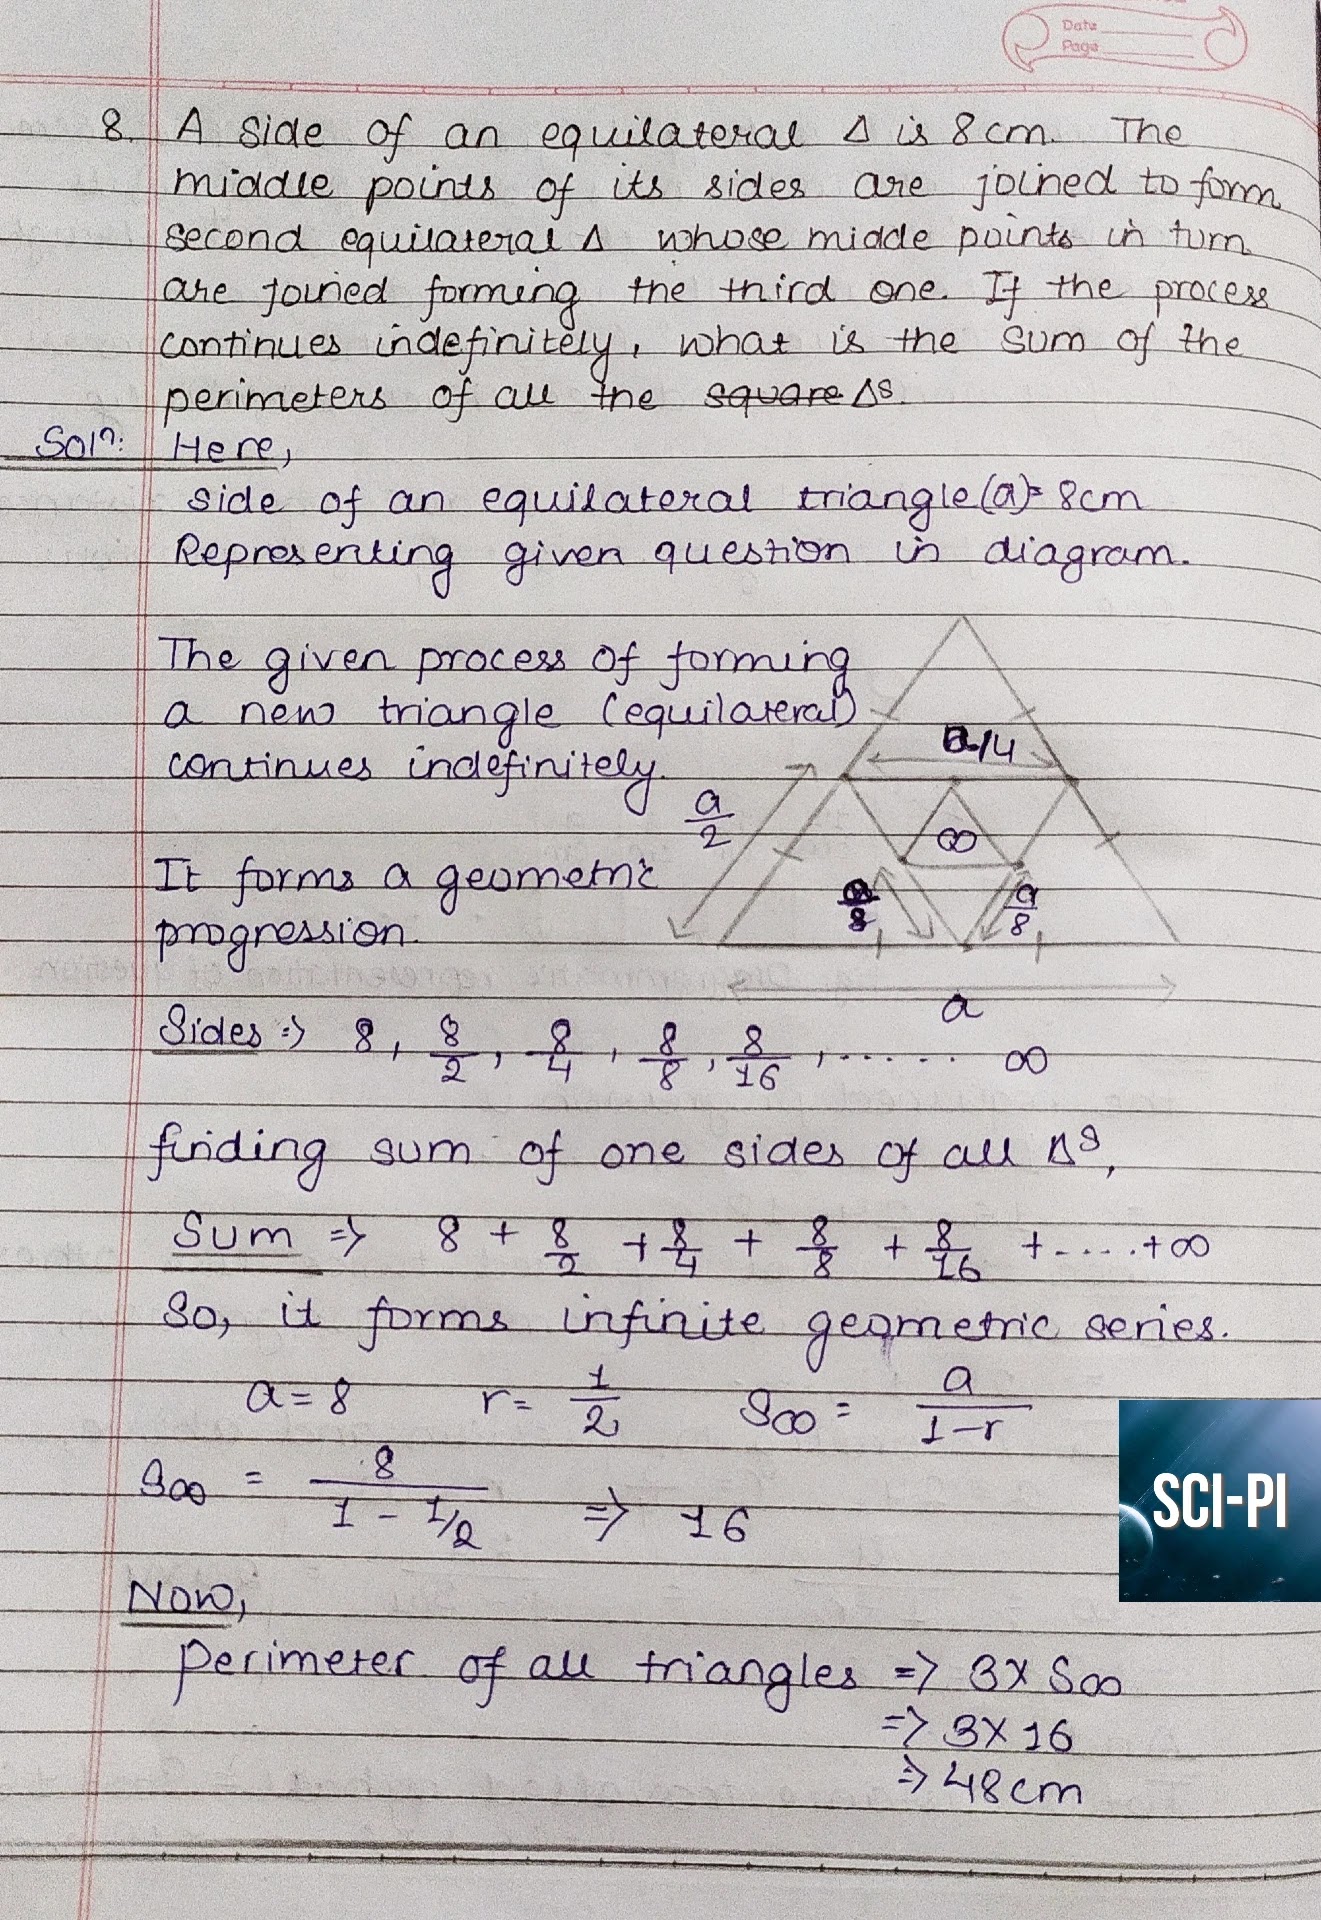 Date
Page
8. A side of an equilateral Δ is 8cm. The
middle points of its sides are joined to form
second equilateral Δ whose midde points in turn
are joined forming the third one. If the process
continues indefinitely, what is the sum of the
perimeters of all the square Δs.
Solⁿ: Here,
side of an equilateral triangle(a)= 8cm
Representing given question in diagram.
The given process of forming
a new triangle (equilateral)
continues indefinitely.
a/4
a/2
∞
a/8
a/8
a
It forms a geometric
progression.
Sides => 8, 8/2, 8/4, 8/8, 8/16, ...... ∞
finding sum of one sides of all Δs,
Sum => 8 + 8/2 + 8/4 + 8/8 + 8/16 + .....+∞
So, it forms infinite geometric series.
a = 8 r = 1/2 S∞ = a/1-r
S∞ = 8/1 - 1/2 => 16
SCI-PI
Now,
perimeter of all triangles => 3 X S∞
=> 3 X 16
=> 48 cm